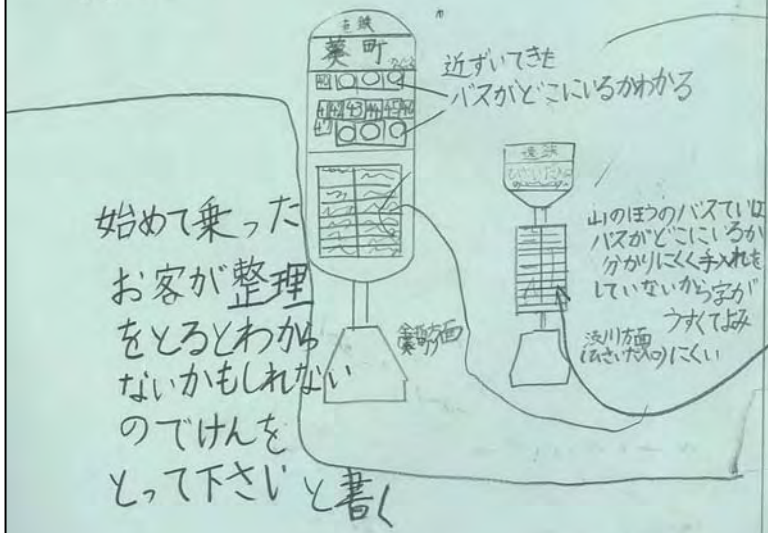 遠鉄
葵町
40
41 42 43 44 45 46
47
近ずいてきた
バスがどこにいるかわかる
始めて乗った
お客が整理
をとるとわから
ないかもしれない
のでけんを
とって下さい と書く
方面
遠鉄
山のほうのバスていは
バスがどこにいるか
分かりにくく手入れを
していないから字が
うすくてよみ
にくい
渋川方面